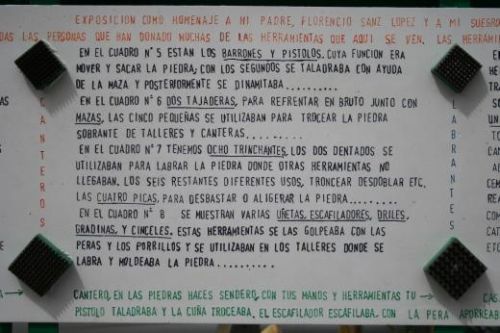 EXPOSICION COMO HOMENAJE A MI PADRE, FLORENCIO SANZ LOPEZ Y A MI SUEGRO
DAS LAS PERSONAS QUE HAN DONADO MUCHAS DE LAS HERRAMIENTAS QUE AQUI SE VEN. LAS HERRAMIEN
EN EL CUADRO Nº5 ESTAN LOS BARRONES Y PISTOLOS. CUYA FUNCION ERA
MOVER Y SACAR LA PIEDRA, CON LOS SEGUNDOS SE TALADRABA CON AYUDA
DE LA MAZA Y POSTERIORMENTE SE DINAMITABA..........
EN EL CUADRO Nº6 DOS TAJADERAS, PARA REFRENTAR EN BRUTO JUNTO CON
MAZAS, LAS CINCO PEQUEÑAS SE UTILIZABAN PARA TROCEAR LA PIEDRA
SOBRANTE DE TALLERES Y CANTERAS..........
EN EL CUADRO Nº7 TENEMOS OCHO TRINCHANTES, LOS DOS DENTADOS SE
UTILIZABAN PARA LABRAR LA PIEDRA DONDE OTRAS HERRAMIENTAS NO
LLEGABAN. LOS SEIS RESTANTES DIFERENTES USOS, TRONCEAR DESDOBLAR ETC.
LAS CUATRO PICAS, PARA DESBASTAR O ALIGERAR LA PIEDRA..........
EN EL CUADRO Nº 8 SE MUESTRAN VARIAS UÑETAS, ESCAFILADORES, DRILES,
GRADINAS, Y CINCELES. ESTAS HERRAMIENTAS SE LAS GOLPEABA CON LAS
PERAS Y LOS PORRILLOS Y SE UTILIZABAN EN LOS TALLERES DONDE SE
LABRA Y MOLDEABA LA PIEDRA..........
CANTEROS
LABRANTES
CANTERO, EN LAS PIEDRAS HACES SENDERO, CON TUS MANOS Y HERRAMIENTAS TU
PISTOLO TALADRABA Y LA CUÑA TROCEABA. EL ESCAFILADOR ESCAFILABA, CON LA PERA APORREAB